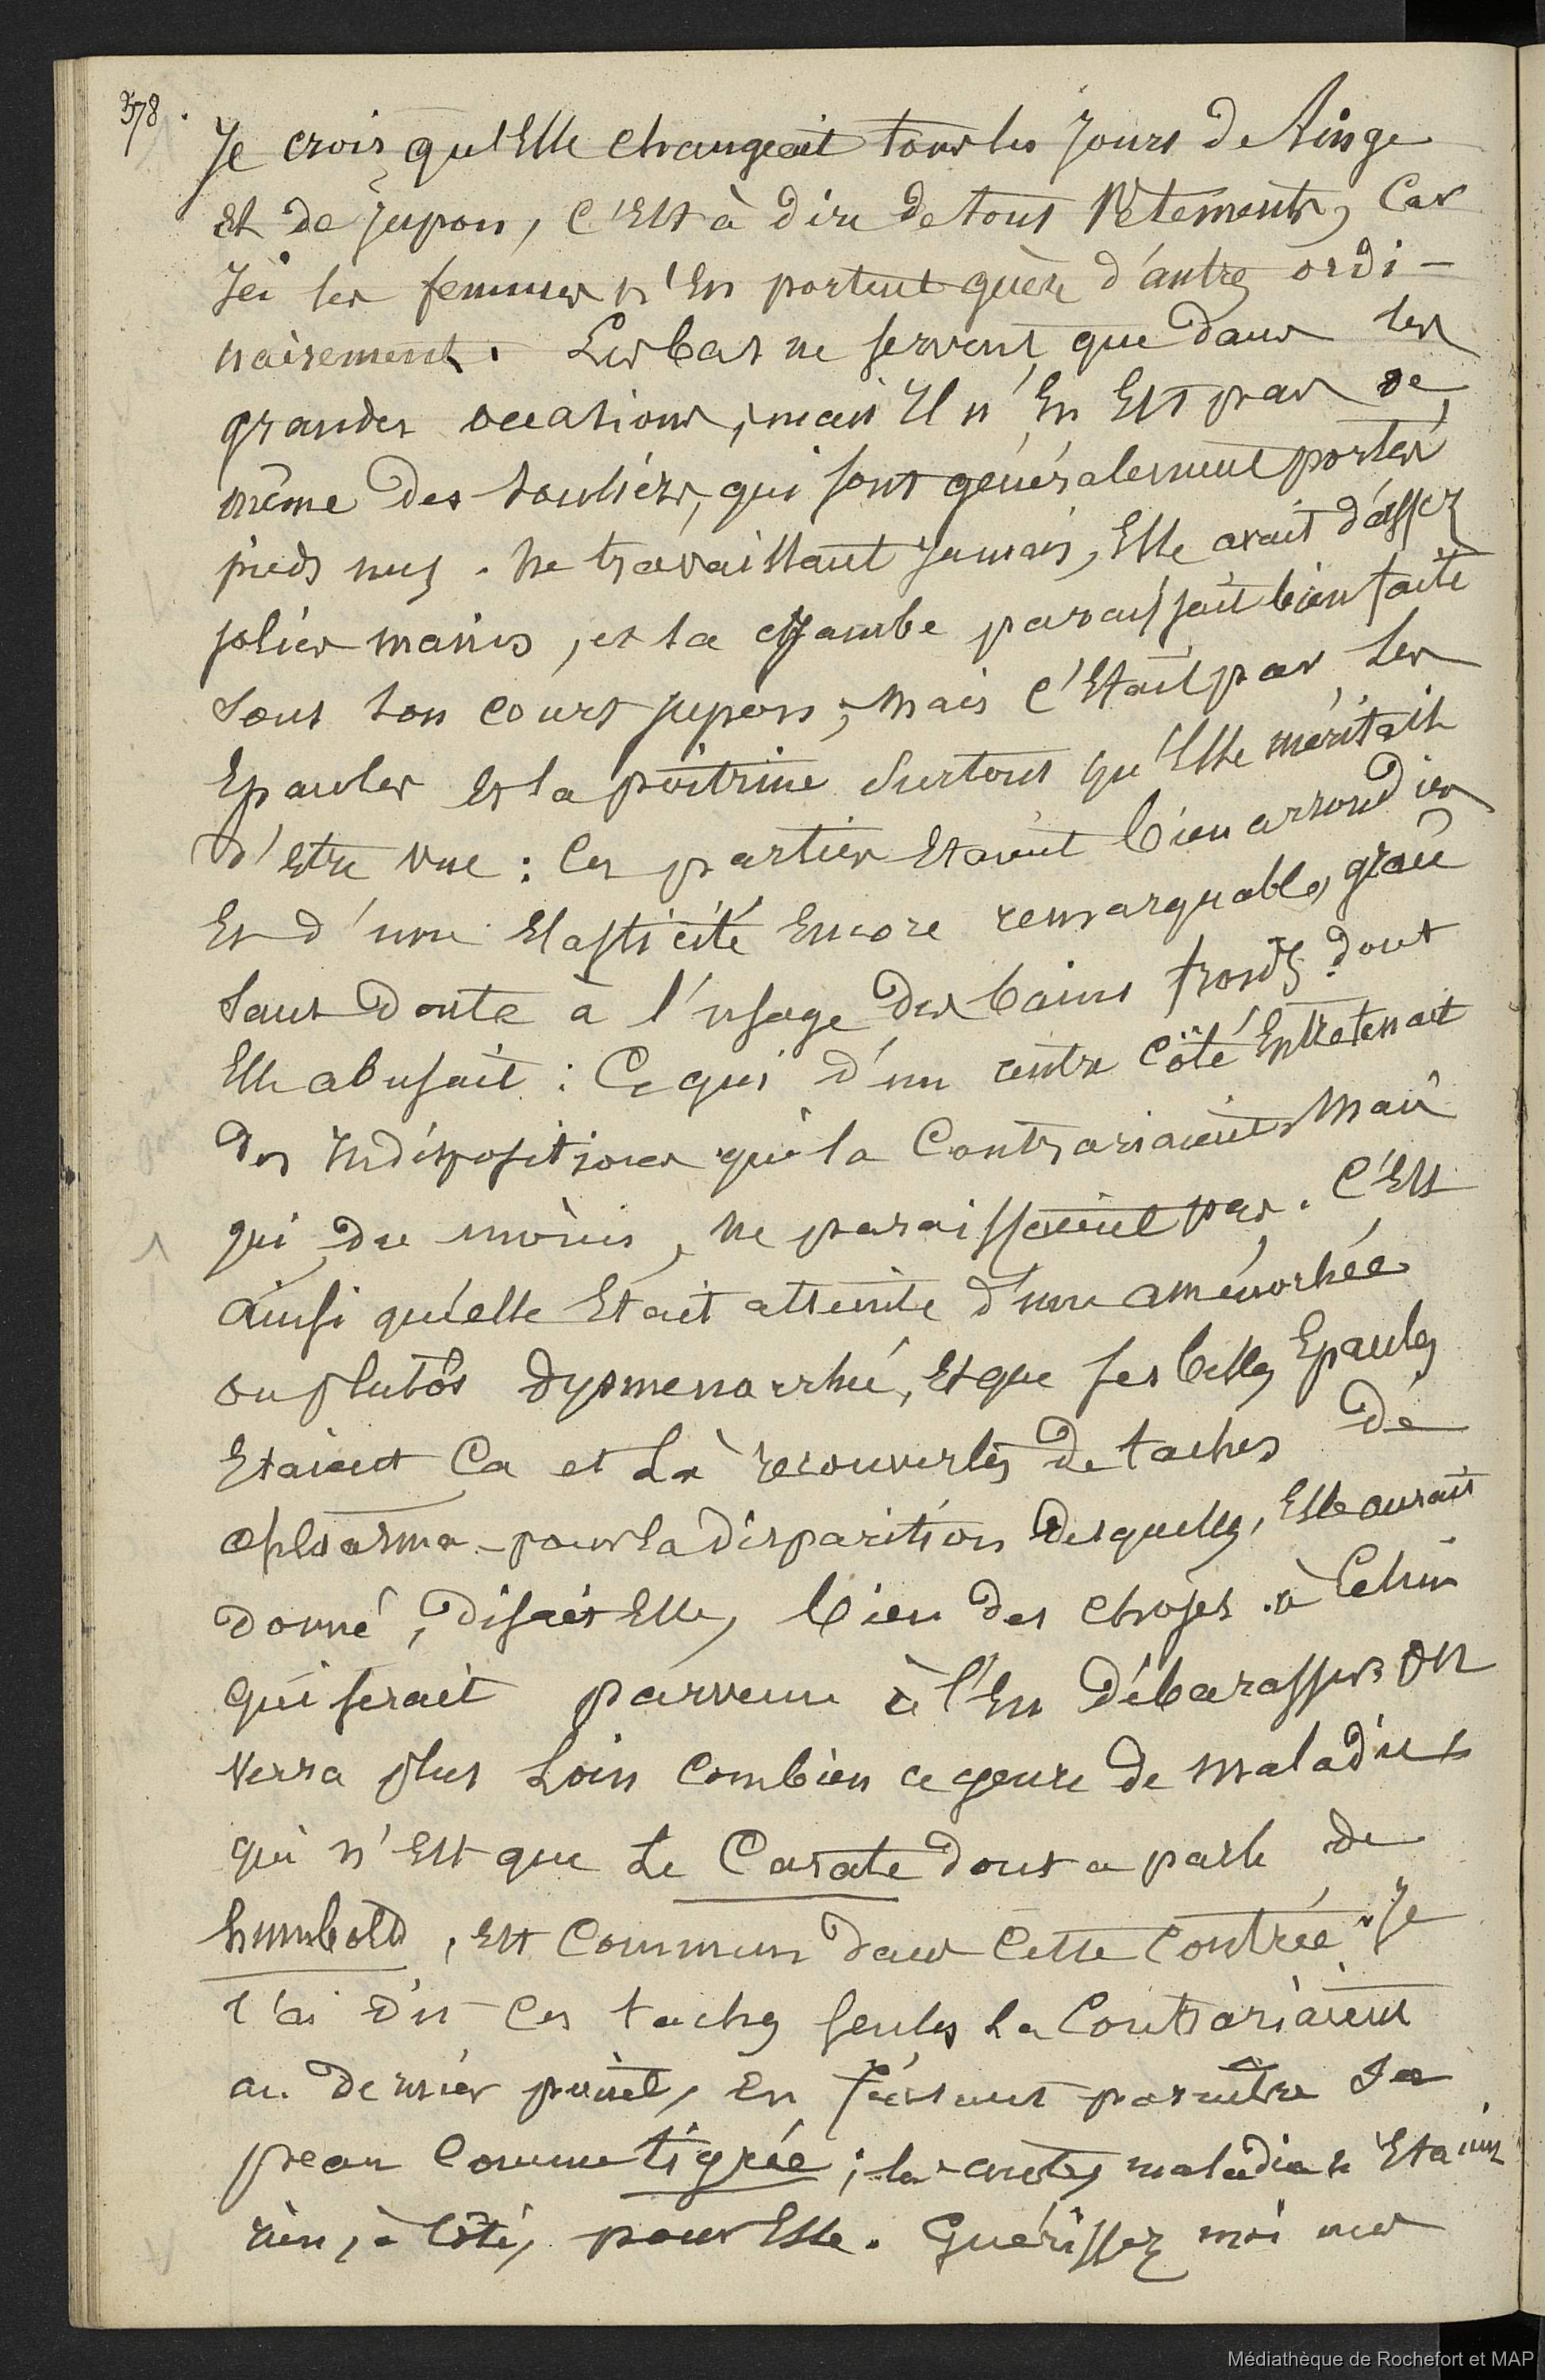 378.
Je crois qu'Elle changeait tous les jours de linge
et de jupon, c'Est à dire de tous Vêtements, Car
Ici les femmes n'En portent guère d'autres ordi-
nairement. Les bas ne servent que dans les
grandes occasions, mais Il n'En Est pas de
même des souliers, qui sont généralement portés
pieds nus. Ne travaillant jamais, Elle avait d'assez
jolies mains, et sa jambe paraissait bien faite
sous son court jupon; mais c'Etait par les
Epaules et la poitrine surtout qu'Elle méritait
d'etre vue: Ces parties Etaient bien arrondies
Et d'une Elasticité Encore remarquable, grâce
sans doute à l'usage des bains froids dont
Elle abusait: Ce qui d'un autre Côté Entretenait
des Indispositions qui la Contrariaient Mais
qui du moins, ne paraissaient pas. C'Est
ainsi qu'elle Etait atteinte d'une aménorhée
ou plutôt dysmenorrhée, Et que ses belles Epaules
Etaient Ca et Là recouvertes de taches de
pour la disparition desquelles, Elle aurait
donné, disait Elle, bien des choses à Celui
qui serait parvenu à l'En débarasser. On
Verra plus Loin Combien ce genre de maladies
qui n'Est que Le Carate dont a parlé de
humbold, Est Commun dans Cette Contrée. Je
l'ai dit Ces taches seules La Contrariaient
au dernier point, En faisant paraitre sa
peau Comme tigrée; les autres maladies n'Etaient
rien, à Côté, pour Elle. Guérissez moi mes
Médiathèque de Rochefort et MAP